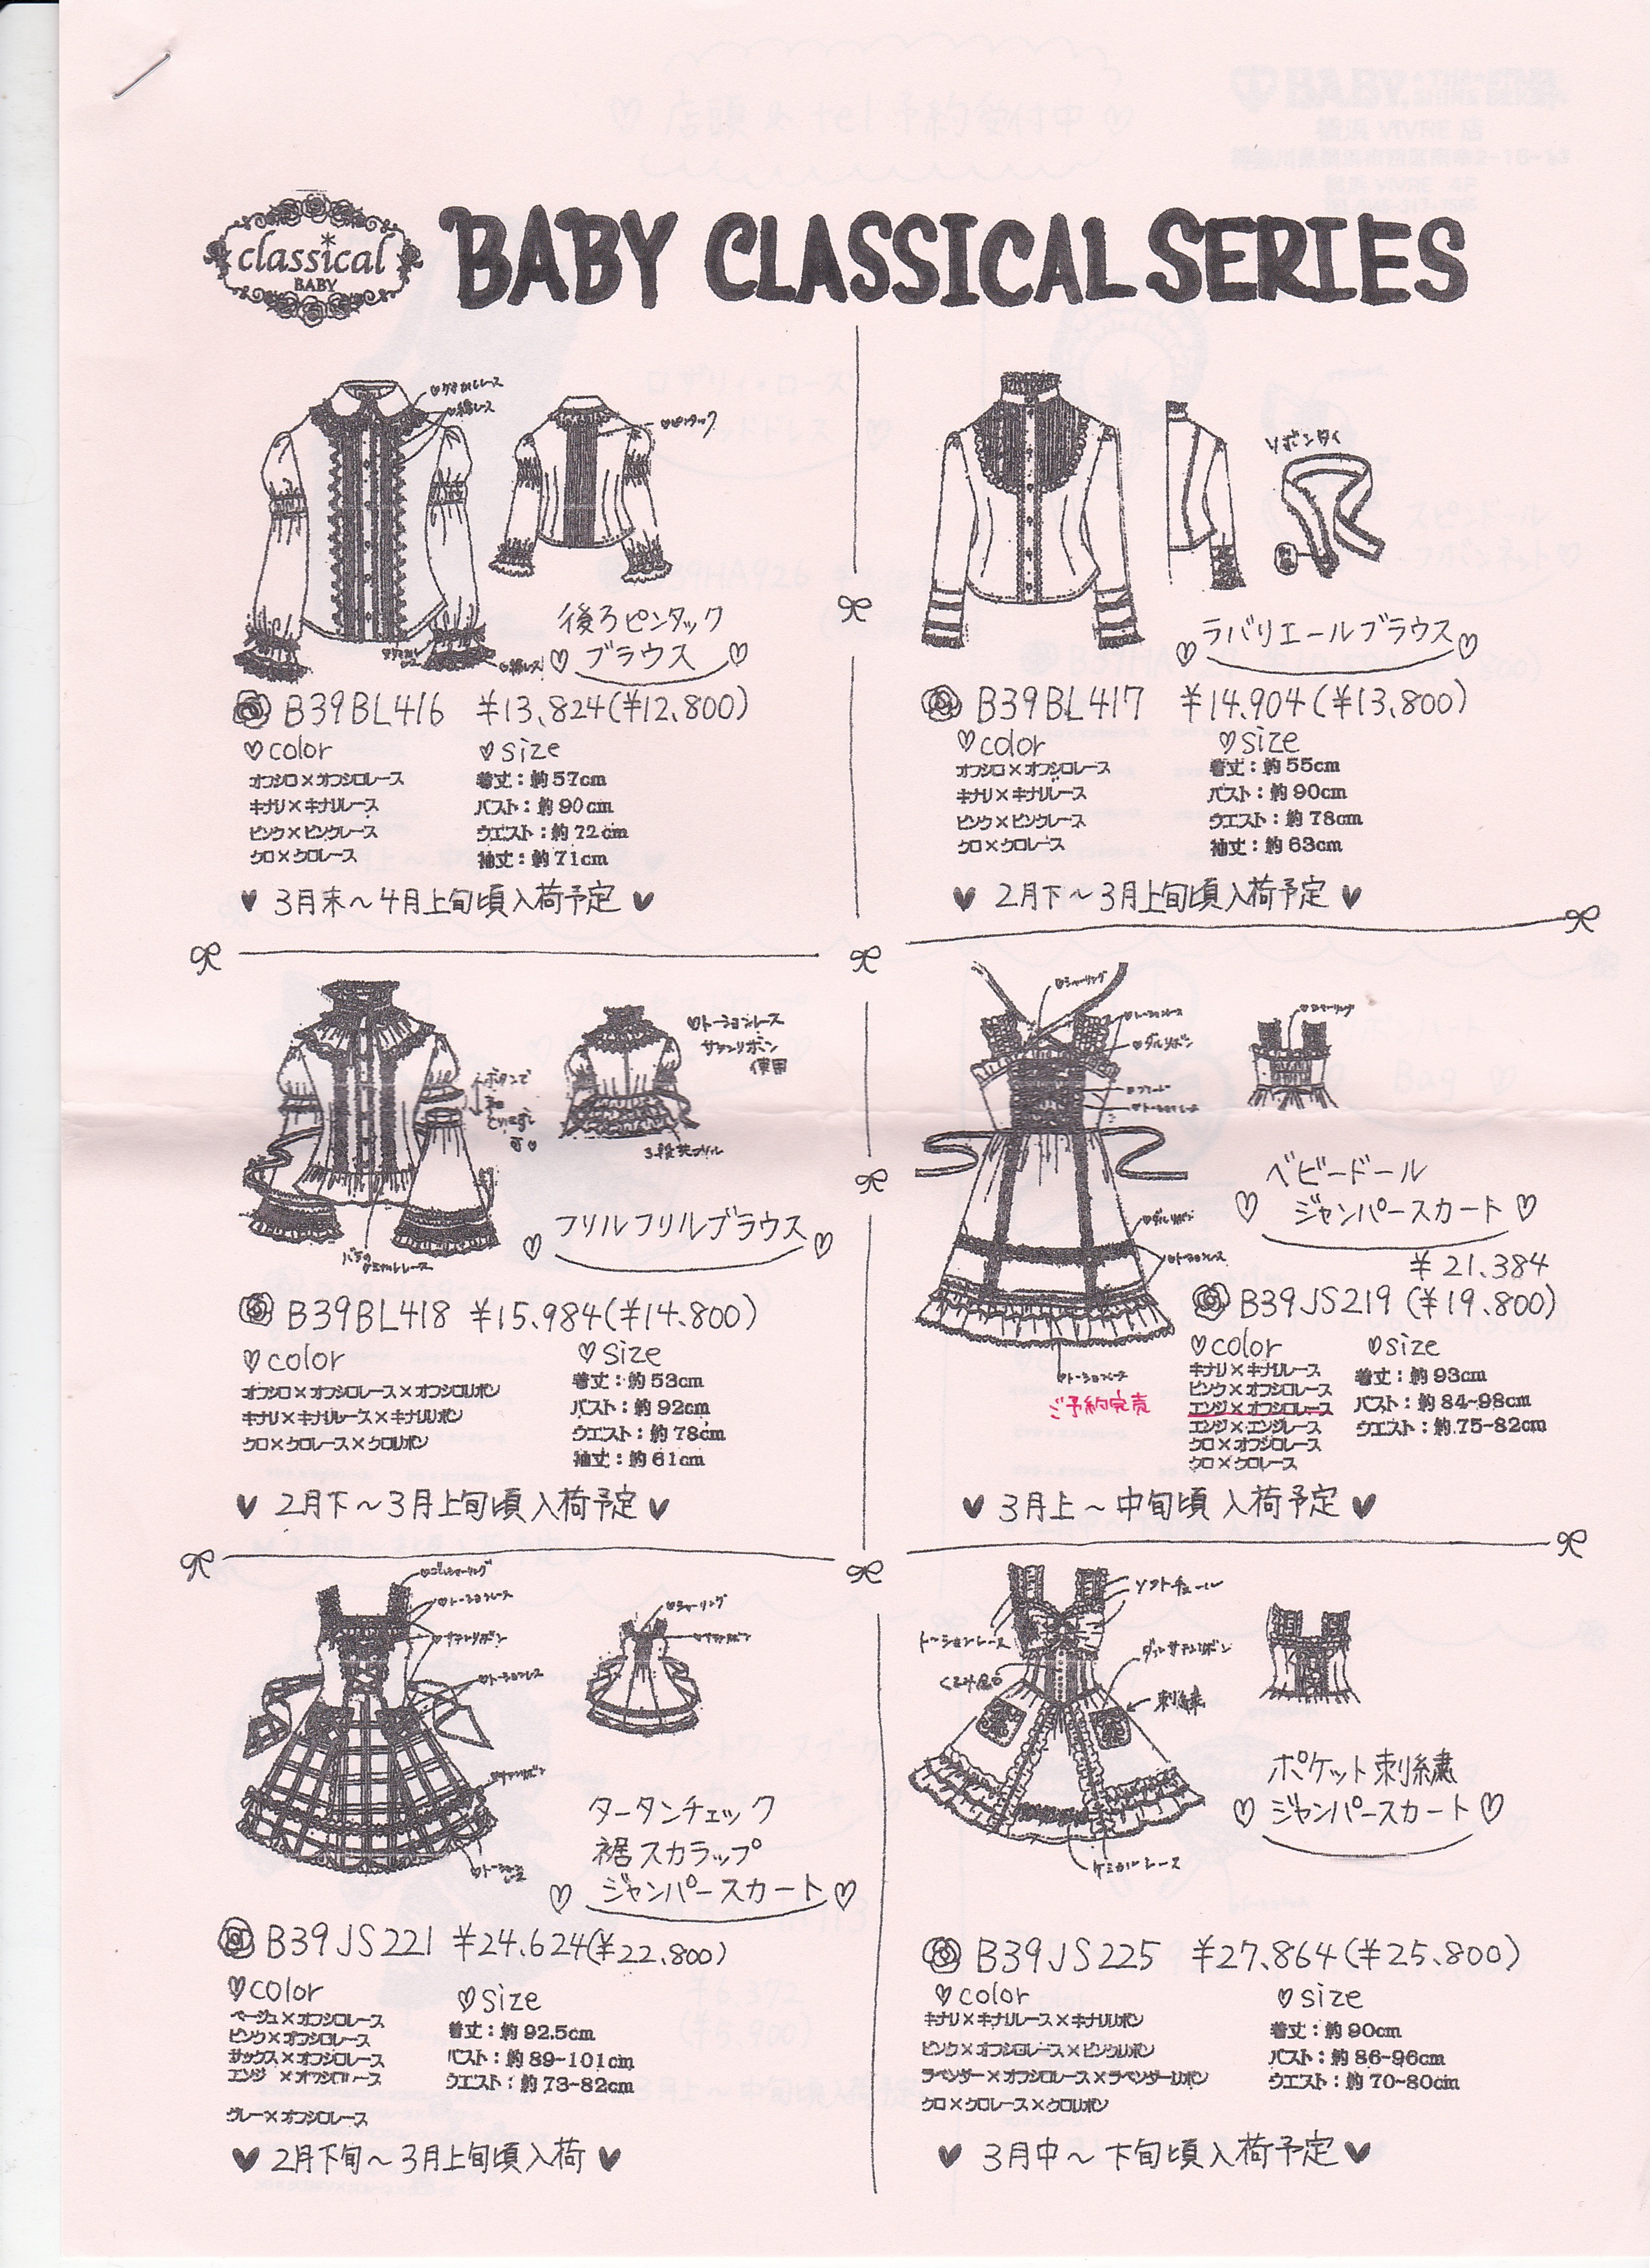 classical
BABY
BABY CLASSICAL SERIES
♡綿レース
♡ピンタック
後ろピンタック
♡ ブラウス ♡
B39BL416 ¥13,824(¥12,800)
♡color
オフシロ×オフシロレース
キナリ×キナリレース
ピンク×ピンクレース
クロ×クロレース
♡size
着丈:約57cm
バスト:約90cm
ウエスト:約72cm
袖丈:約71cm
♥ 3月末~4月上旬頃入荷予定 ♥
リボンタイ
♡ ラバリエールブラウス ♡
B39BL417 ¥14,904(¥13,800)
♡color
オフシロ×オフシロレース
キナリ×キナリレース
ピンク×ピンクレース
クロ×クロレース
♡size
着丈:約55cm
バスト:約90cm
ウエスト:約78cm
袖丈:約63cm
♥ 2月下~3月上旬頃入荷予定 ♥
♡トーションレース
サテンリボン
使用
ボタンで
袖
とりはずし
可♡
♡ フリルフリルブラウス ♡
B39BL418 ¥15,984(¥14,800)
♡color
オフシロ×オフシロレース×オフシロリボン
キナリ×キナリレース×キナリリボン
クロ×クロレース×クロリボン
♡size
着丈:約53cm
バスト:約92cm
ウエスト:約78cm
袖丈:約61cm
♥ 2月下~3月上旬頃入荷予定 ♥
♡シャーリング
♡トーションレース
♡シャーリング
♡トーションレース
ベビードール
♡ ジャンパースカート ♡
¥21,384
B39JS219 (¥19,800)
ご予約完売
♡color
キナリ×キナリレース
ピンク×オフシロレース
エンジ×オフシロレース
エンジ×エンジレース
クロ×オフシロレース
クロ×クロレース
♡size
着丈:約93cm
バスト:約84~98cm
ウエスト:約75~82cm
♥ 3月上~中旬頃入荷予定 ♥
♡トーションレース
♡サテンリボン
♡トーションレース
♡シャーリング
♡サテンリボン
♡サテンリボン
タータンチェック
裾スカラップ
♡ ジャンパースカート ♡
B39JS221 ¥24,624(¥22,800)
♡color
ベージュ×オフシロレース
ピンク×オフシロレース
サックス×オフシロレース
エンジ ×オフシロレース
グレー×オフシロレース
♡size
着丈:約92.5cm
バスト:約89~101cm
ウエスト:約73~82cm
♥ 2月下旬~3月上旬頃入荷 ♥
ソフトチュール
トーションレース
くるみ釦
刺繍
ケミカルレース
ポケット刺繍
♡ ジャンパースカート ♡
B39JS225 ¥27,864(¥25,800)
♡color
キナリ×キナリレース×キナリリボン
ピンク×オフシロレース×ピンクリボン
ラベンダー×オフシロレース×ラベンダーリボン
クロ×クロレース×クロリボン
♡size
着丈:約90cm
バスト:約86~96cm
ウエスト:約70~80cm
♥ 3月中~下旬頃入荷予定 ♥